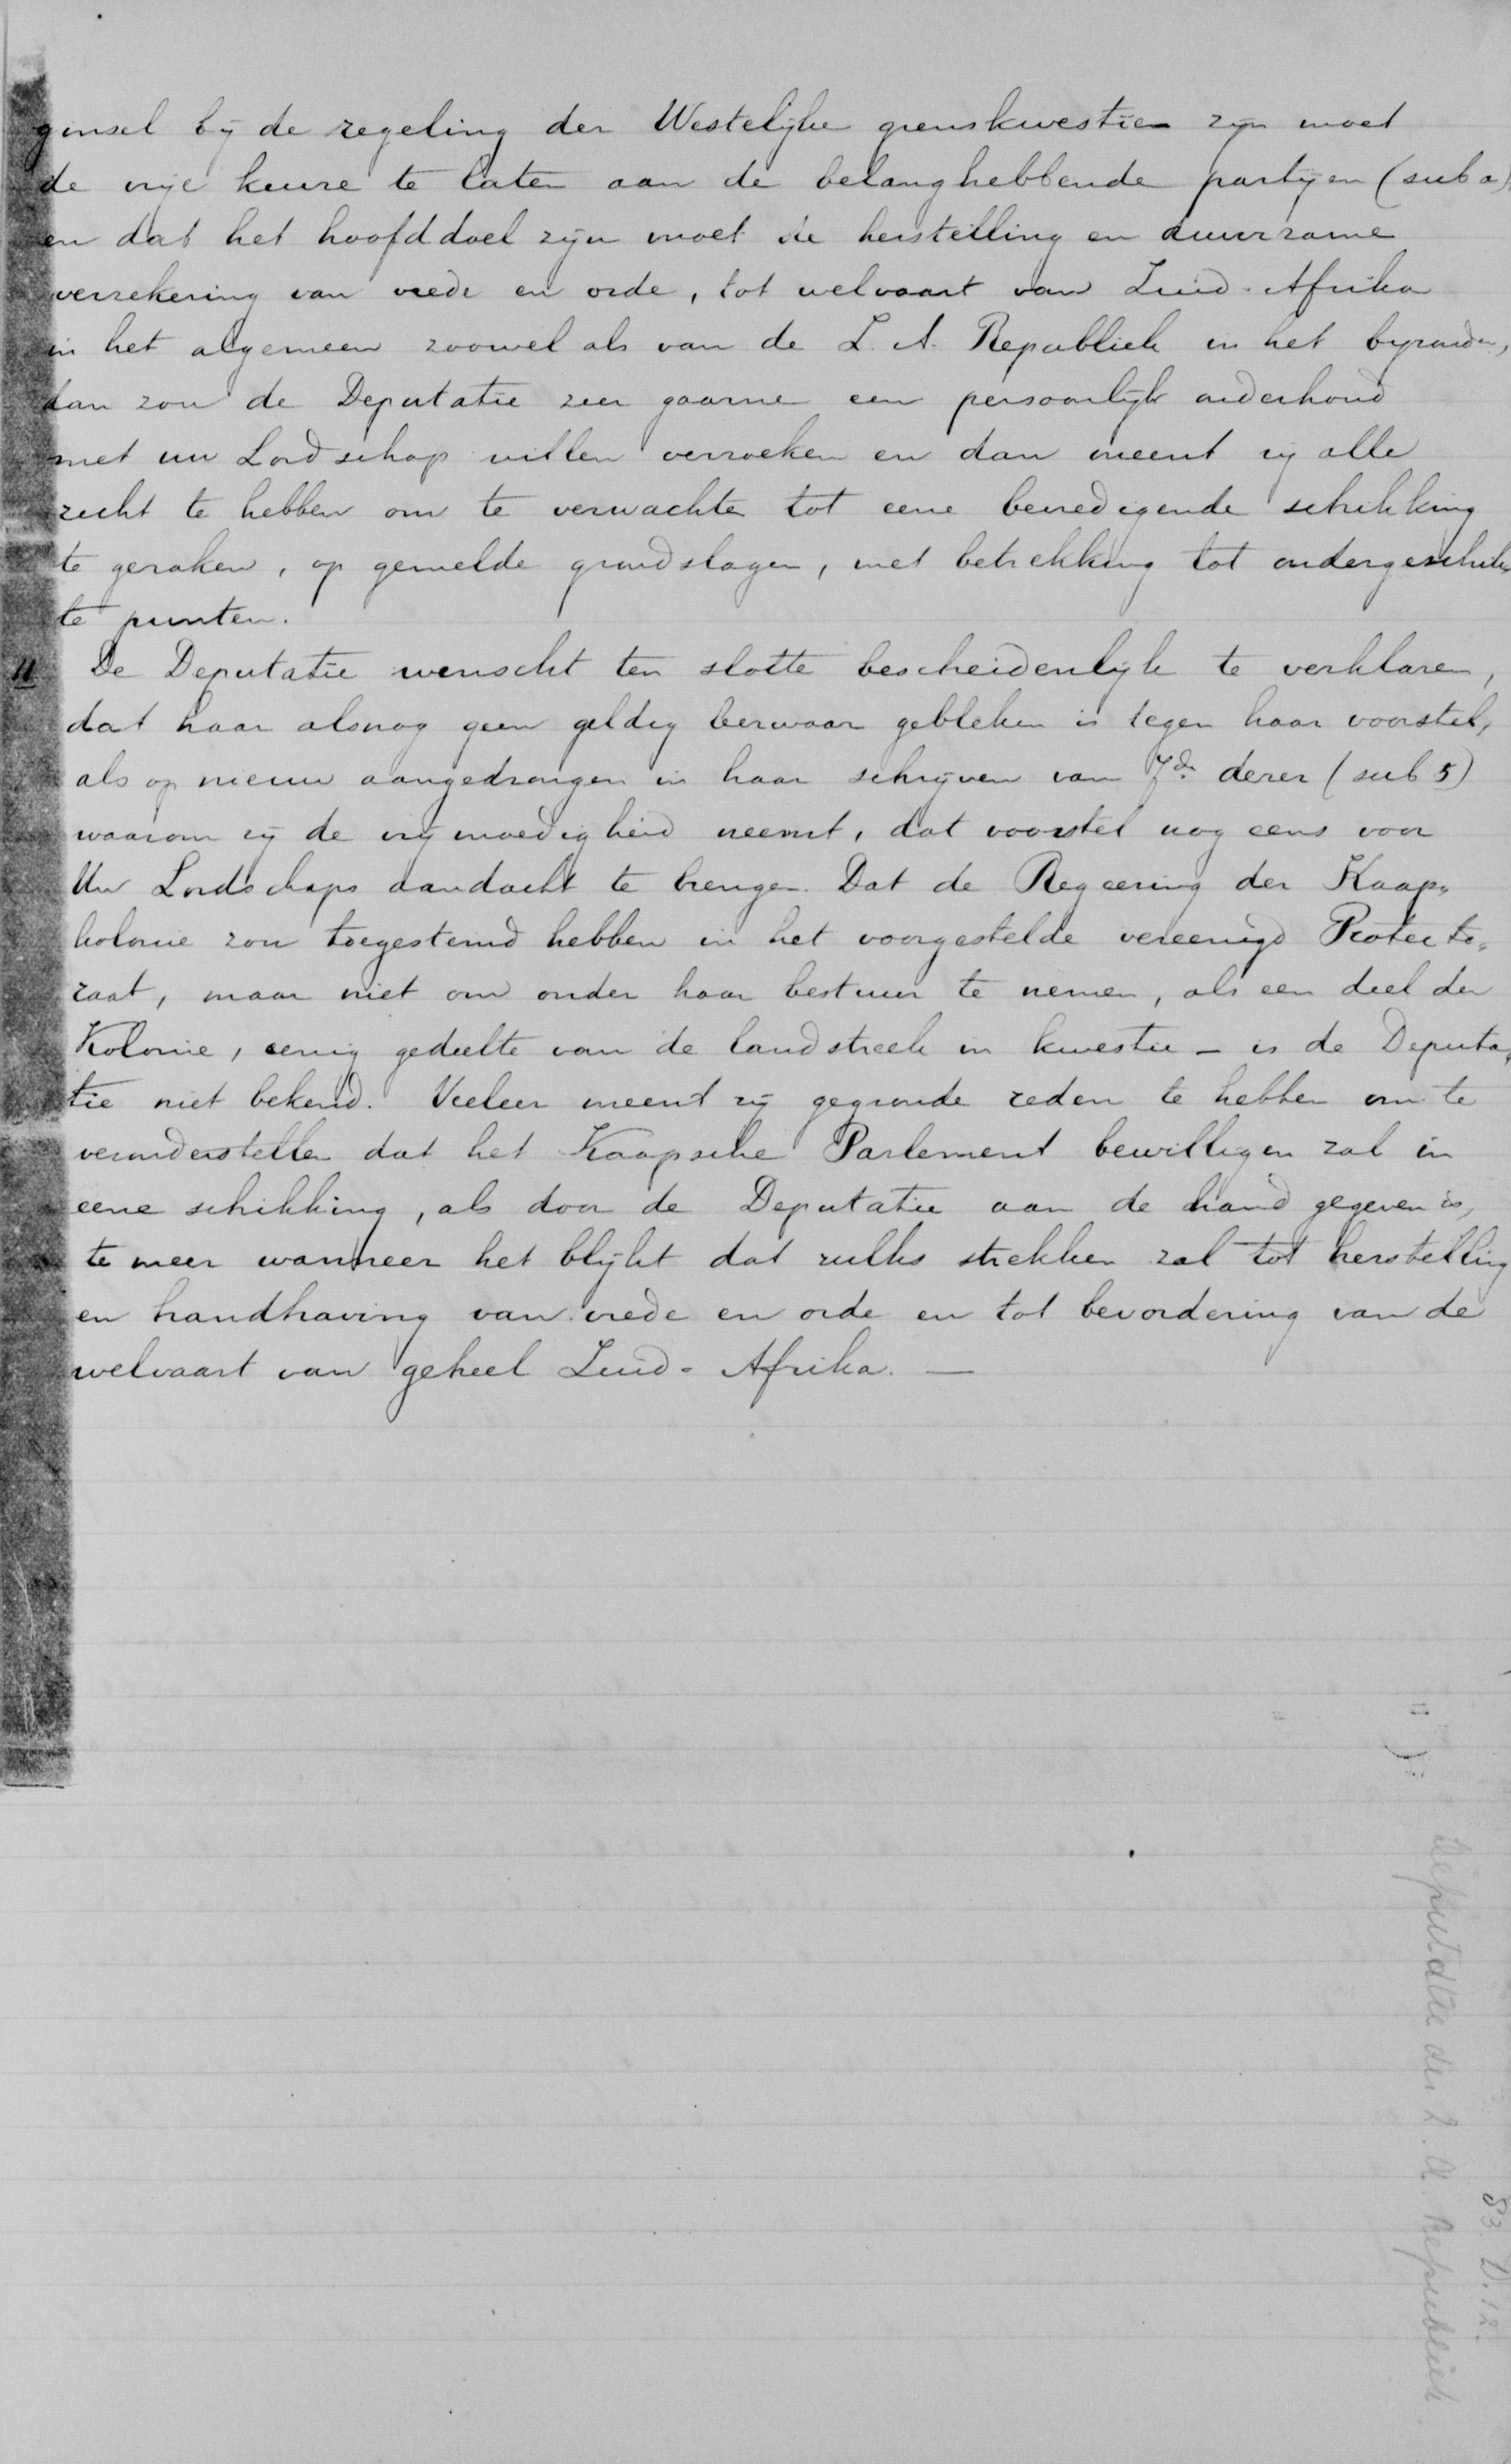 ginsel bij de regeling der Westelijke grenskwestie zijn moet
de vrije keuze te laten aan de belanghebbende partijen (sub a)
en dat het hoofddoel zijn moet de herstelling en duurzame
verzekering van vrede en orde, tot welvaart van Zuid-Afrika
in het algemeen zoowel als van de Z. A. Republiek in het byzonder,
dan zou de Deputatie zeer gaarne een persoonlijk onderhoud
met uw Lordschap willen verzoeken en dan meent zij alle
recht te hebben om te verwachten tot eene bevredigende schikking
te geraken, op gemelde grondslagen, met betrekking tot ondergeschik
te punten.
11 De Deputatie wenscht ten slotte bescheidenlijk te verklaren,
dat haar alsnog geen geldig bezwaar gebleken is tegen haar voorstel,
als op nieuw aangedrongen in haar schrijven van 7de dezer (sub 5)
waarom zij de vrijmoedigheid neemt, dat voorstel nog eens voor
Uw Lordschaps aandacht te brengen. Dat de Regeering der Kaap-
kolonie zou toegestemd hebben in het voorgestelde vereenigd Protecto-
raat, maar niet om onder haar bestuur te nemen, als een deel der
Kolonie, eenig gedeelte van de landstreek in kwestie - is de Deputa-
tie niet bekend. Veeleer meent zij gegronde reden te hebben om te
veronderstellen dat het Kaapsche Parlement bewilligen zal in
eene schikking, als door de Deputatie aan de hand gegeven is,
te meer wanneer het blijkt dat zulks strekken zal tot herstelling
en handhaving van vrede en orde en tot bevordering van de
welvaart van geheel Zuid-Afrika. —
Deputatie der Z. A. Republiek
53. D. 12.